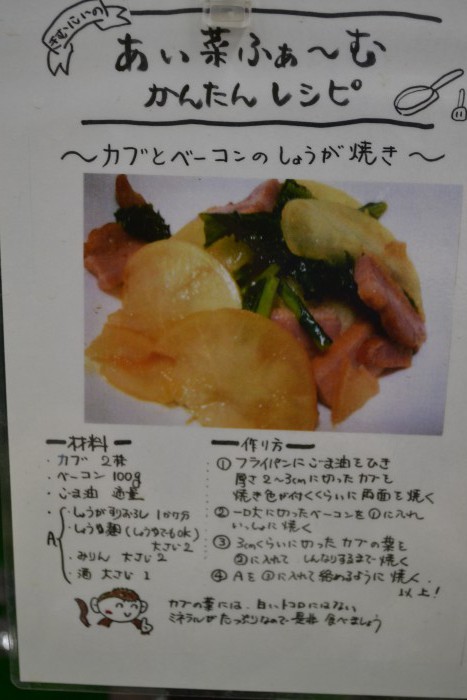 きむにいの
あい菜ふぁ～む
かんたんレシピ
～カブとベーコンのしょうが焼き～
ー材料ー
・カブ 2株
・ベーコン 100g
・ごま油 適量
A
・しょうがすりおろし 1かけ分
・しょうゆ麹(しょうゆでもOK)
大さじ2
・みりん 大さじ2
・酒 大さじ1
ー作り方ー
① フライパンにごま油をひき
厚さ2～3cmに切ったカブを
焼き色が付くくらいに両面を焼く
② 一口大に切ったベーコンを①に入れ
いっしょに焼く
③ 3cmくらいに切ったカブの葉を
②に入れて しんなりするまで焼く
④ Aを③に入れて絡めるように焼く.
以上!
カブの葉には、白いトコロにはない
ミネラルがたっぷりなので是非 食べましょう